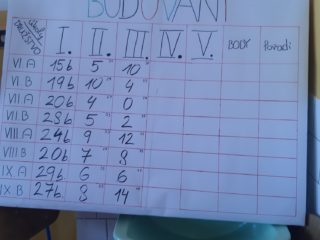 BUDOVÁNÍ
úkol DRUŽSTVO I. II. III. IV. V. BODY Pořadí
VI. A 15b 5" 10"
VI. B 19b 10" 4"
VII. A 20b 4" 0"
VII. B 23b 5" 2"
VIII. A 24b 9" 12"
VIII. B 20b 7" 8"
IX. A 29b 6" 6"
IX. B 27b 8" 14"